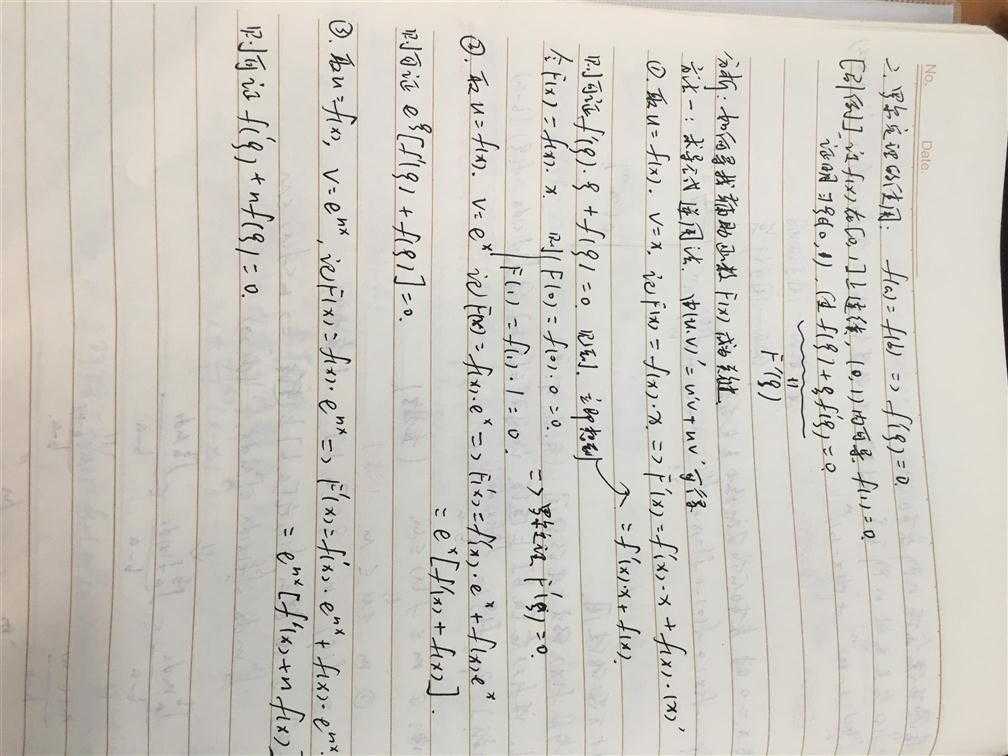 No.
Date.
2. 罗尔定理的使用: f(a)=f(b) => f'(ξ)=0.
[引例] 设f(x)在[0,1]上连续, (0,1)内可导 f(1)=0.
证明 ∃ξ∈(0,1). 使 f(ξ)+ξf'(ξ)=0.
F'(ξ)
分析: 如何寻找辅助函数 F(x) 成为关键
方法一: 求导公式逆用法. 由(u·v)'=u'v+uv' 可得
①. 取u=f(x). v=x, 记F(x)=f(x)·x => F'(x)=f'(x)·x+f(x)·(x)'
=f'(x)·x+f(x).
则可证f'(ξ)·ξ+f(ξ)=0 则到. 立即想到
令F(x)=f(x)·x. 则 F(0)=f(0)·0=0.
F(1)=f(1)·1=0. => 罗尔定理 F'(ξ)=0.
②. 取u=f(x). v=e^x 记F(x)=f(x)·e^x => F'(x)=f'(x)·e^x+f(x)e^x
=e^x[f'(x)+f(x)].
则可证 e^ξ[f'(ξ)+f(ξ)]=0.
③. 取u=f(x), v=e^{nx}, 记F(x)=f(x)·e^{nx} => F'(x)=f'(x)·e^{nx}+f(x)·e^{nx}·
=e^{nx}[f'(x)+nf(x)]
则可证 f'(ξ)+nf(ξ)=0.